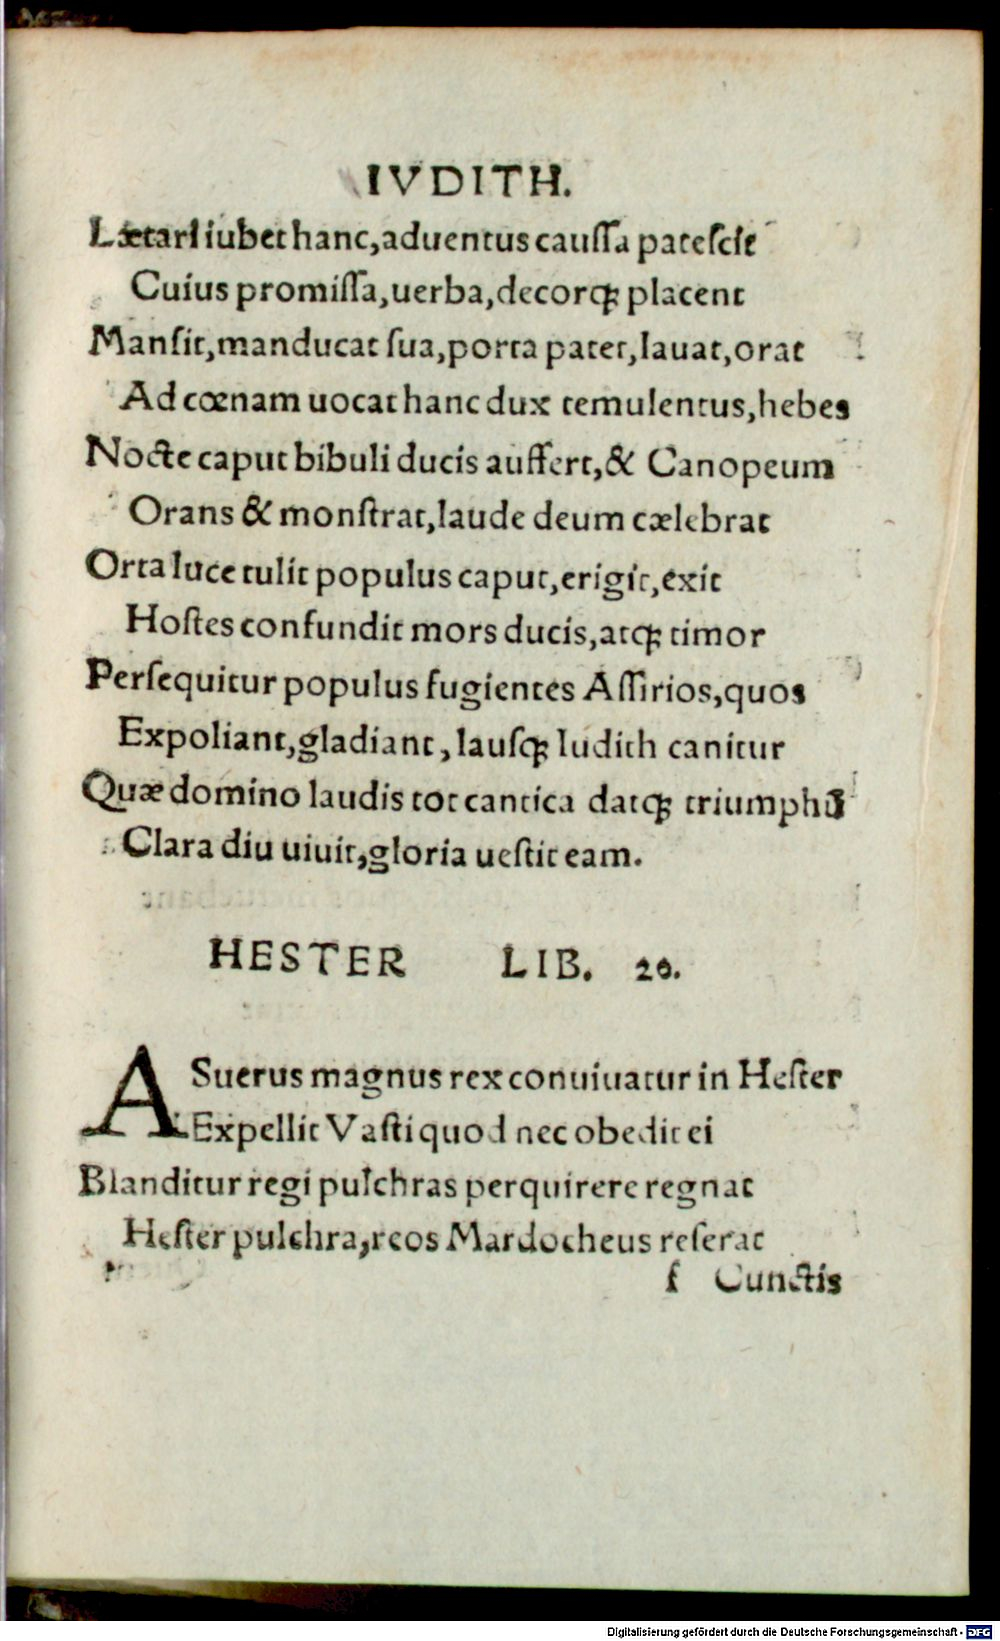 IVDITH.
Lætari iubet hanc,aduentus cauſſa pateſcit
Cuius promiſſa,uerba,decorq; placent
Manſit,manducat ſua,porta patet,lauat,orat
Ad cœnam uocat hanc dux temulentus,hebes
Nocte caput bibuli ducis auffert,& Canopeum
Orans & monſtrat,laude deum cælebrat
Orta luce tulit populus caput,erigit,exit
Hoſtes confundit mors ducis,atq; timor
Perſequitur populus fugientes Aſſirios,quos
Expoliant,gladiant, lauſq; Iudith canitur
Quæ domino laudis tot cantica datq; triumphū
Clara diu uiuit,gloria ueſtit eam.
HESTER LIB. 20.
ASuerus magnus rex conuiuatur in Heſter
Expellit Vaſti quod nec obedit ei
Blanditur regi pulchras perquirere regnat
Heſter pulchra,reos Mardocheus reſerat
f Cunctis
Digitalisierung gefördert durch die Deutsche Forschungsgemeinschaft - DFG